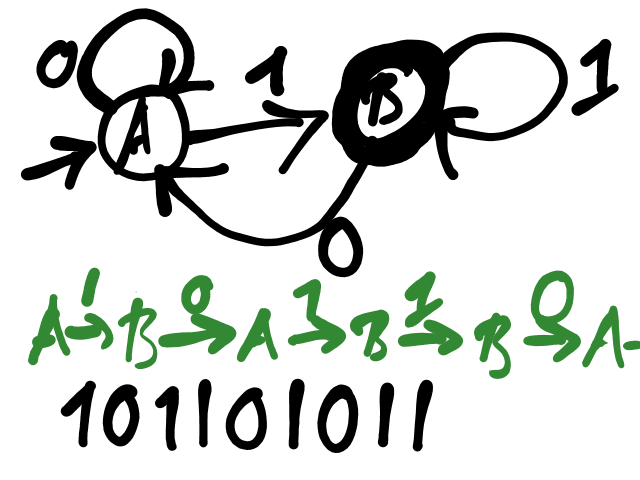 0 1 1
A B
0
A 1→ B 0→ A 1→ B 1→ B 0→ A -
101101011